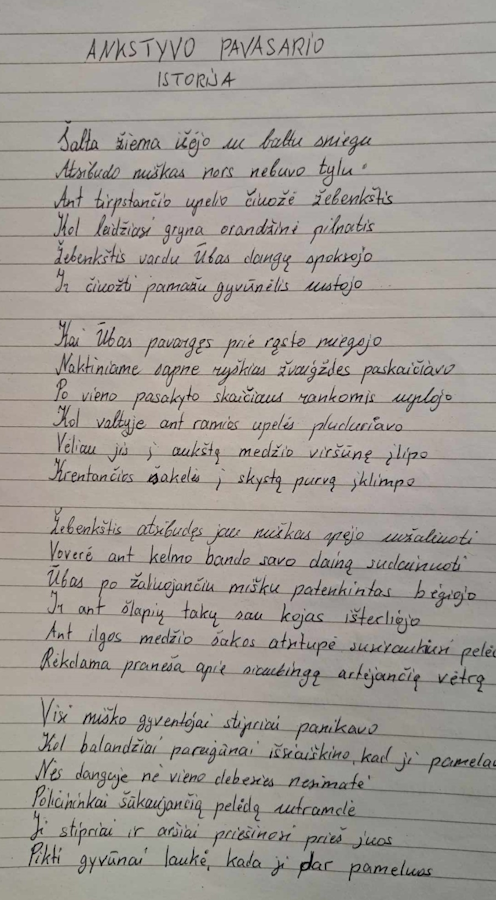 ANKSTYVO PAVASARIO
ISTORIJA
Šalta žiema išėjo su baltu sniegu
Atsibudo miškas nors nebuvo tylu.
Ant tirpstančio upelio čiuožė žebenkštis
Kol leidžiasi gryna orandžinė pilnatis
Žebenkštis vardu Ūbas dangų spoksojo
Ir čiuožti pamažu gyvūnėlis sustojo
Kai Ūbas pavargęs prie rąsto miegojo
Naktiniame sapne ryškias žvaigždes paskaičiavo
Po vieno pasakyto skaičiaus rankomis suplojo
Kol valtyje ant ramios upelės pluduriavo
Vėliau jis į aukštą medžio viršūnę įlipo
Krentančios šakelės į skystą purvą įklimpo
Žebenkštis atsibudęs jau miškas spėjo sužaliuoti
Voverė ant kelmo bando savo dainą sudainuoti
Ūbas po žaliuojančiu mišku patenkintas bėgiojo
Ir ant šlapių takų sau kojas išterliojo
Ant ilgos medžio šakos atsitupė susiraukusi pelėd
Rėkdama praneša apie siaubingą artėjančią vėtrą
Visi miško gyventojai stipriai panikavo
Kol balandžiai pareigūnai išsiaiškino, kad ji pamelav
Nes danguje nė vieno debesies nesimatė
Policininkai šūkaujančią pelėdą sutramdė
Ji stipriai ir aršiai priešinosi prieš juos
Pikti gyvūnai laukė, kada ji dar pameluos